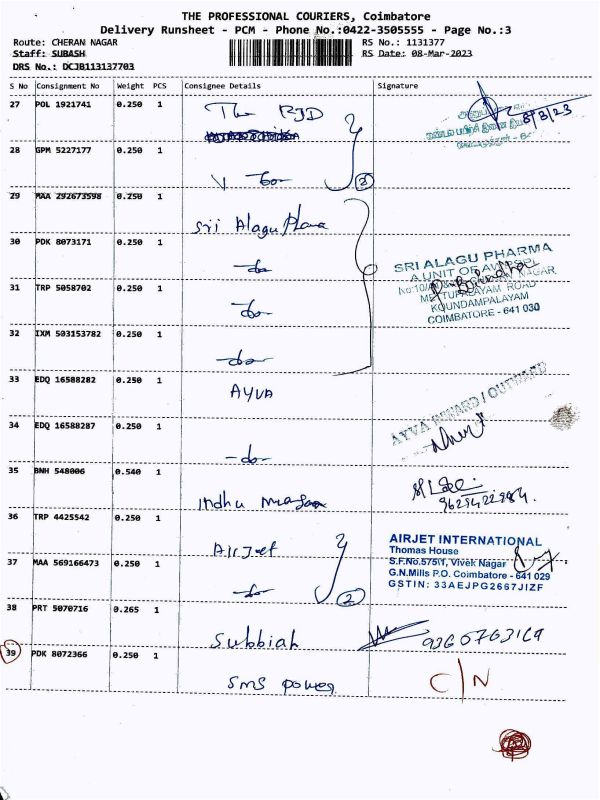 THE PROFESSIONAL COURIERS, Coimbatore
Delivery Runsheet - PCM - Phone No.:0422-3505555 - Page No.:3
Route: CHERAN NAGAR RS No.: 1131377
Staff: SUBASH RS Date: 08-Mar-2023
DRS No.: DCJB113137703
S No Consignment No Weight PCS Consignee Details Signature
27 POL 1921741 0.250 1 The RJD 8/3/23
28 GPM 5227177 0.250 1 - do - 2
29 MAA 292673598 0.250 1 Sri Alagu
30 PDK 8073171 0.250 1 - do -
SRI ALAGU PHARMA
A UNIT OF
NAGAR,
METTUPALAYAM ROAD
KOUNDAMPALAYAM
COIMBATORE - 641 030
31 TRP 5058702 0.250 1 - do -
32 IXM 503153782 0.250 1 - do -
33 EDQ 16588282 0.250 1 AYVA
AYVA INWARD / OUTWARD
34 EDQ 16588287 0.250 1 - do -
35 BNH 548006 0.540 1 Indhu
36 TRP 4425542 0.250 1 Airjet
AIRJET INTERNATIONAL
Thomas House
S.F.No.575/1, Vivek Nagar
G.N.Mills P.O. Coimbatore - 641 029
GSTIN: 33AEJPG2667JIZF
37 MAA 569166473 0.250 1 - do - 2
38 PRT 5070716 0.265 1 Subbiah
39 PDK 8072366 0.250 1 SMS power C/N